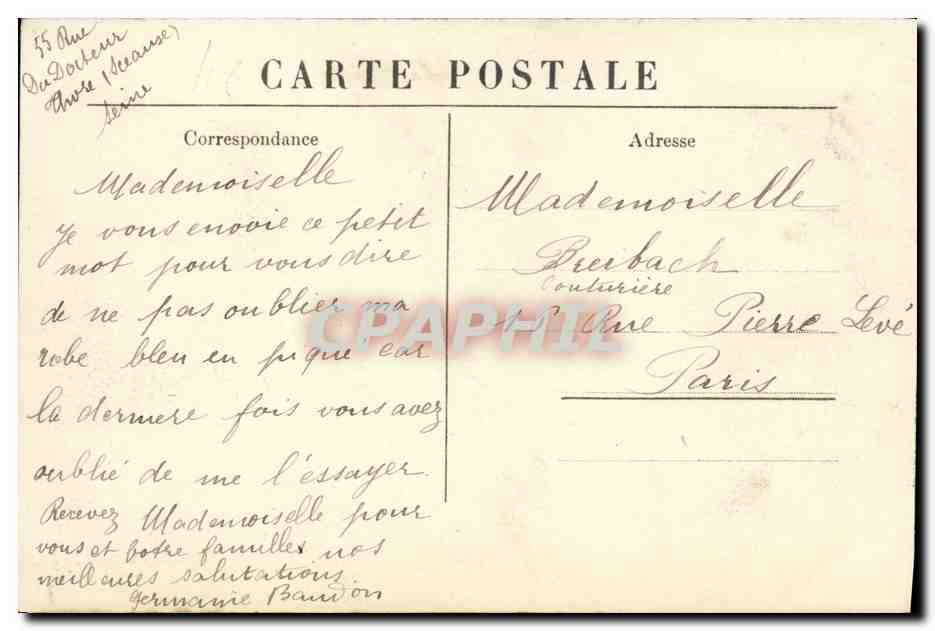 55 Rue
Du Docteur
Thore (Sceause)
Seine
CARTE POSTALE
Correspondance
Mademoiselle
Je vous envoie ce petit
mot pour vous dire
de ne pas oublier ma
robe bleu en pique car
la dernière fois vous avez
oublié de me l'éssayer.
Recevez Mademoiselle pour
vous et votre familles nos
meilleures salutations.
Germanie Baudon
Adresse
Mademoiselle
Breibach
Couturière
15 Rue Pierre Levé
Paris
CPAPHIL